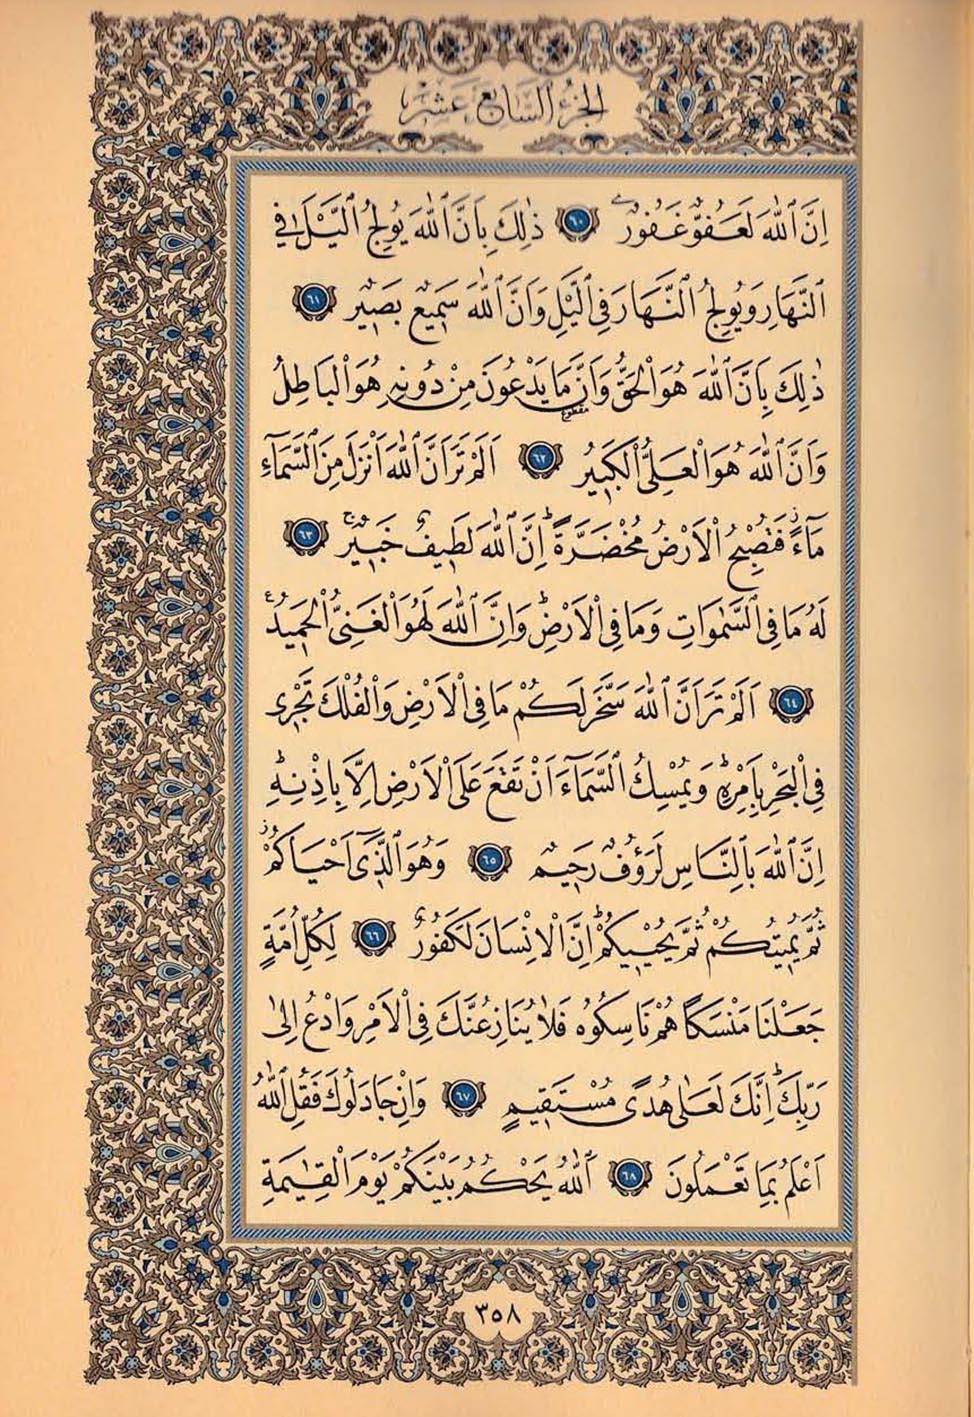 الجزء السابع عشر
اِنَّ ٱللّٰهَ لَعَفُوٌّ غَفُورٌ ٦٠ ذٰلِكَ بِاَنَّ ٱللّٰهَ يُولِجُ ٱلَّيْلَ فِى
ٱلنَّهَارِ وَيُولِجُ ٱلنَّهَارَ فِى ٱلَّيْلِ وَاَنَّ ٱللّٰهَ سَمِيعٌ بَصِيرٌ ٦١
ذٰلِكَ بِاَنَّ ٱللّٰهَ هُوَ ٱلْحَقُّ وَاَنَّ مَا يَدْعُونَ مِنْ دُونِهِ هُوَ ٱلْبَاطِلُ
مقطوع
وَاَنَّ ٱللّٰهَ هُوَ ٱلْعَلِىُّ ٱلْكَبِيرُ ٦٢ اَلَمْ تَرَ اَنَّ ٱللّٰهَ اَنْزَلَ مِنَ ٱلسَّمَآءِ
مَآءً فَتُصْبِحُ ٱلْاَرْضُ مُخْضَرَّةً ط اِنَّ ٱللّٰهَ لَطِيفٌ خَبِيرٌ ج ٦٣
لَهُ مَا فِى ٱلسَّمٰوَاتِ وَمَا فِى ٱلْاَرْضِ ط وَاِنَّ ٱللّٰهَ لَهُوَ ٱلْغَنِىُّ ٱلْحَمِيدُ ع
٦٤ اَلَمْ تَرَ اَنَّ ٱللّٰهَ سَخَّرَ لَكُمْ مَا فِى ٱلْاَرْضِ وَٱلْفُلْكَ تَجْرِى
فِى ٱلْبَحْرِ بِاَمْرِهِ ط وَيُمْسِكُ ٱلسَّمَآءَ اَنْ تَقَعَ عَلَى ٱلْاَرْضِ اِلَّا بِاِذْنِهِ ط
اِنَّ ٱللّٰهَ بِٱلنَّاسِ لَرَؤُفٌ رَحِيمٌ ٦٥ وَهُوَ ٱلَّذِىٓ اَحْيَاكُمْ ز
ثُمَّ يُمِيتُكُمْ ثُمَّ يُحْيِيكُمْ ط اِنَّ ٱلْاِنْسَانَ لَكَفُورٌ ٦٦ لِكُلِّ اُمَّةٍ
جَعَلْنَا مَنْسَكًا هُمْ نَاسِكُوهُ فَلَا يُنَازِعُنَّكَ فِى ٱلْاَمْرِ وَادْعُ اِلٰى
رَبِّكَ ط اِنَّكَ لَعَلٰى هُدًى مُسْتَقِيمٍ ٦٧ وَاِنْ جَادَلُوكَ فَقُلِ ٱللّٰهُ
اَعْلَمُ بِمَا تَعْمَلُونَ ٦٨ ٱَللّٰهُ يَحْكُمُ بَيْنَكُمْ يَوْمَ ٱلْقِيٰمَةِ
٣٥٨